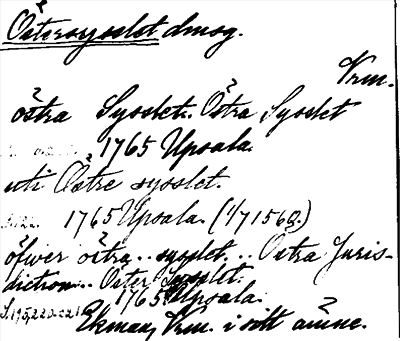 Östersysslet dmsg.
Vrm.
östra Sysslet. Östra Sysslet
1765 Upsala.
uti Östre sysslet.
1765 Upsala. (1/7 1560.)
öfwer östra.. sysslet... Östra Juris-
diction... Öster Sysslet.
1765 Upsala.
S. 195, 220-221
Ekman, Vrm. i sitt ämne.